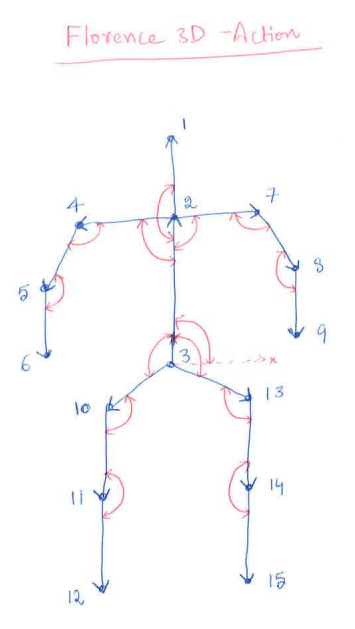 Florence 3D -Action
1
4 2 7
5 8
6 9
3 x
10 13
11 14
12 15